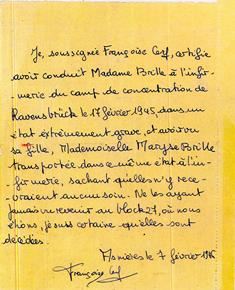 Je, soussignée Françoise Cerf, certifie
avoir conduit Madame Brille à l'infir-
merie du camp de concentration de
Ravensbrück le 17 février 1945, dans un
état extrêmement grave, et avoir vu
sa fille, Mademoiselle Maryse Brille
transportée dans ce même état à l'in-
firmerie, sachant qu'elles n'y rece-
vraient aucun soin. Ne les ayant
jamais vu revenir au block 27, où nous
étions, je suis certaine qu'elles sont
décédées.
le 7 février 1946
Françoise Cerf